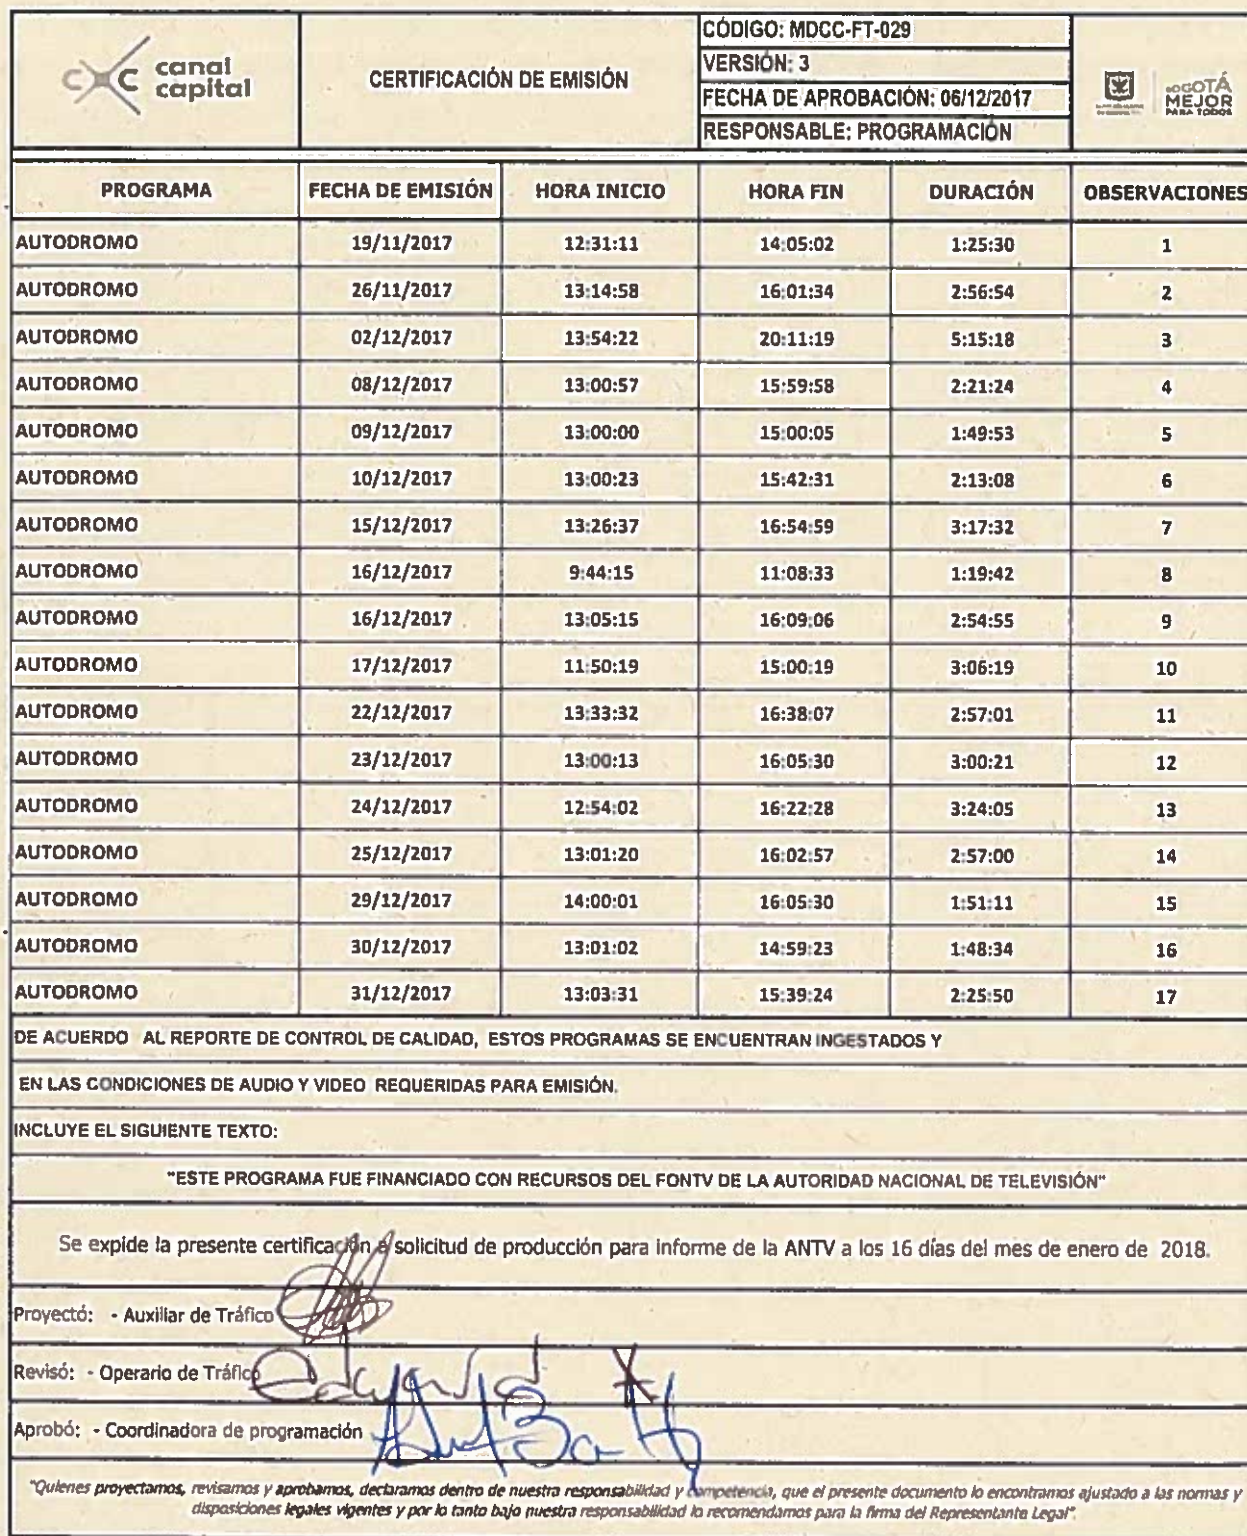 canal
capital
CERTIFICACIÓN DE EMISIÓN
CÓDIGO: MDCC-FT-029
VERSIÓN: 3
FECHA DE APROBACIÓN: 06/12/2017
RESPONSABLE: PROGRAMACIÓN
BOGOTÁ
MEJOR
PARA TODOS
PROGRAMA FECHA DE EMISIÓN HORA INICIO HORA FIN DURACIÓN OBSERVACIONES
AUTODROMO 19/11/2017 12:31:11 14:05:02 1:25:30 1
AUTODROMO 26/11/2017 13:14:58 16:01:34 2:56:54 2
AUTODROMO 02/12/2017 13:54:22 20:11:19 5:15:18 3
AUTODROMO 08/12/2017 13:00:57 15:59:58 2:21:24 4
AUTODROMO 09/12/2017 13:00:00 15:00:05 1:49:53 5
AUTODROMO 10/12/2017 13:00:23 15:42:31 2:13:08 6
AUTODROMO 15/12/2017 13:26:37 16:54:59 3:17:32 7
AUTODROMO 16/12/2017 9:44:15 11:08:33 1:19:42 8
AUTODROMO 16/12/2017 13:05:15 16:09:06 2:54:55 9
AUTODROMO 17/12/2017 11:50:19 15:00:19 3:06:19 10
AUTODROMO 22/12/2017 13:33:32 16:38:07 2:57:01 11
AUTODROMO 23/12/2017 13:00:13 16:05:30 3:00:21 12
AUTODROMO 24/12/2017 12:54:02 16:22:28 3:24:05 13
AUTODROMO 25/12/2017 13:01:20 16:02:57 2:57:00 14
AUTODROMO 29/12/2017 14:00:01 16:05:30 1:51:11 15
AUTODROMO 30/12/2017 13:01:02 14:59:23 1:48:34 16
AUTODROMO 31/12/2017 13:03:31 15:39:24 2:25:50 17
DE ACUERDO AL REPORTE DE CONTROL DE CALIDAD, ESTOS PROGRAMAS SE ENCUENTRAN INGESTADOS Y
EN LAS CONDICIONES DE AUDIO Y VIDEO REQUERIDAS PARA EMISIÓN.
INCLUYE EL SIGUIENTE TEXTO:
"ESTE PROGRAMA FUE FINANCIADO CON RECURSOS DEL FONTV DE LA AUTORIDAD NACIONAL DE TELEVISIÓN"
Se expide la presente certificación a solicitud de producción para informe de la ANTV a los 16 días del mes de enero de 2018.
Proyectó: - Auxiliar de Tráfico
Revisó: - Operario de Tráfico
Aprobó: - Coordinadora de programación
"Quienes proyectamos, revisamos y aprobamos, declaramos dentro de nuestra responsabilidad y competencia, que el presente documento lo encontramos ajustado a las normas y
disposiciones legales vigentes y por lo tanto bajo nuestra responsabilidad lo recomendamos para la firma del Representante Legal".